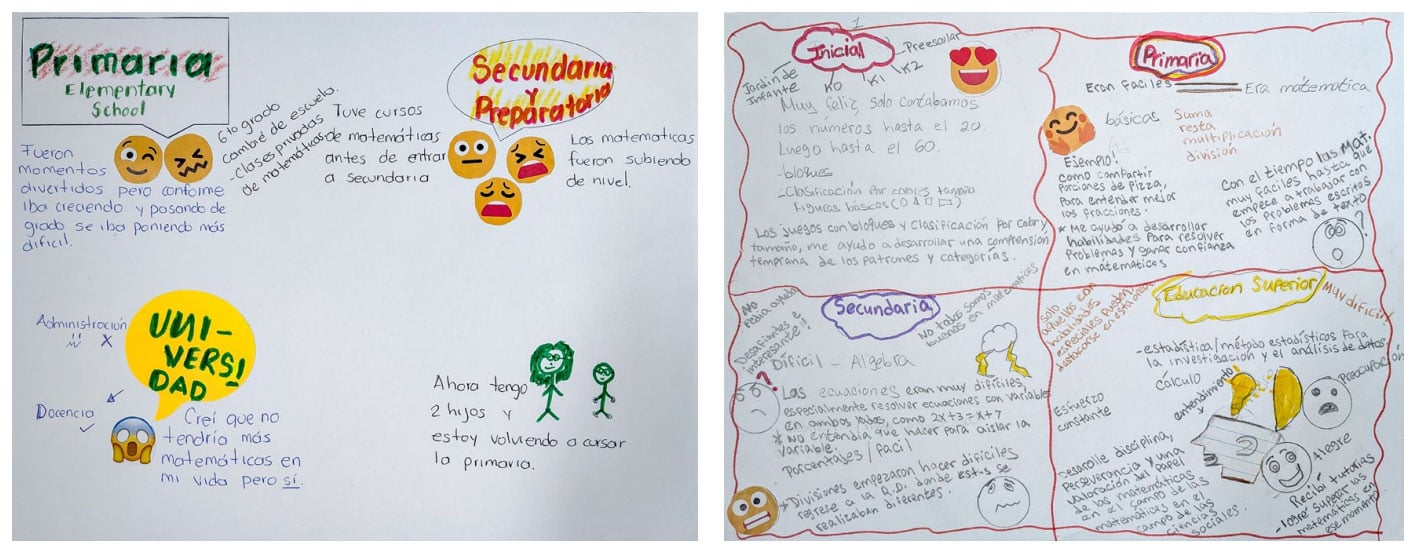 Primaria
Elementary
School
Fueron
momentos
divertidos pero conforme
iba creciendo y pasando de
grado se iba poniendo más
dificil.
6to grado
cambie de escuela.
-Clases privadas
de matemáticas
Tuve cursos
de matemáticas
antes de entrar
a secundaria
Secundaria
y
Preparatoria
Las matematicas
fueron subiendo
de nivel.
Administración
X
Docencia
UNI-
VERSI
DAD
Creí que no
tendría más
matemáticas en
mi vida pero sí.
Ahora tengo
2 hijos y
estoy volviendo a cursar
la primaria.
1
Inicial
Preescolar
Jardín de
Infante
K0
K1
K2
Muy feliz, solo contabamos
los números hasta el 20.
Luego hasta el 60.
-bloques
-Clasificación por colores, tamaño
Figuras básicas
Los juegos con bloques y clasificación por color y
tamaño, me ayudo a desarrollar una comprensión
temprana de los patrones y categorías.
Primaria
Eran faciles
Era mátemática
básicas
Suma
resta
multiplicación
división
Ejemplo!
Como compartir
Porciones de pizza,
Para entender mejor
los fracciones.
* Me ayudó a desarrollar
habilidades Para resolver
Problemas y ganar confianza
en mátematicas
Con el tiempo las Mat.
muy fáciles hasta que
empece a trabajar con
los problemas escritos
en forma de texto
?
Secundaria
No
Pedia ayuda
Desafiantes e
interesante!!
No todos somos
buenos en matematicas
Díficil - Algebra
?
Las ecuaciones eran muy difíciles
especialmente resolver ecuaciones con variables
en ambos lados, como 2x+3=x+7
* No entendía que hacer para aislar la
variable.
Porcentajes / facil
* Divisiones empezaron hacer difíciles
regrese a la R.D. donde estas se
realizaban diferentes.
Educacion Superior
Muy dificil!
Solo
aquellos con
habilidades
especiales pueden
destacarse en esta área
-estadística/método estadísticos Para
la investigación y el análisis de datos
cálculo
entendimiento
Preocupación
Esfuerzo
constante
Desarolle disciplina,
Perseverancia y una
valoración del papel
de las matemáticas
en el campo de las
matemáticas en el
campo de las
ciencias
sociales.
Alegre
Recibí tutorias
-logre superar las
matemáticas en
ese momento